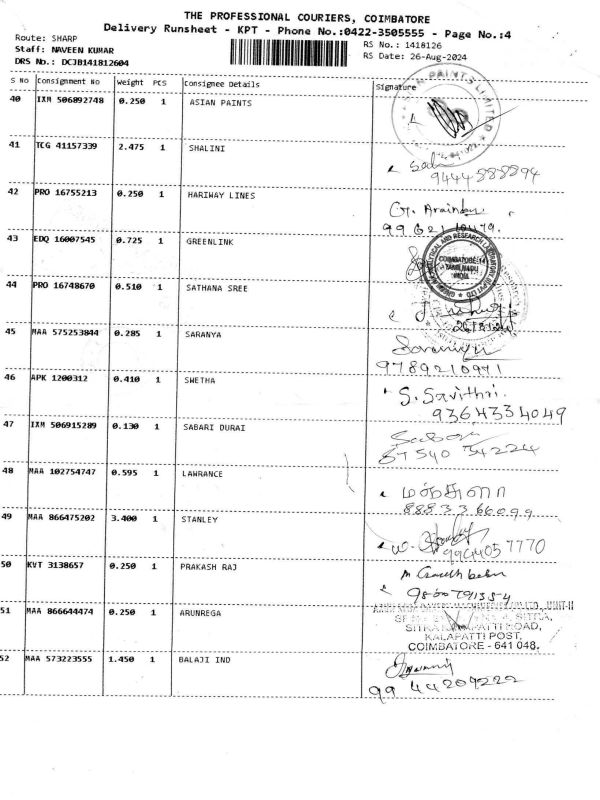 THE PROFESSIONAL COURIERS, COIMBATORE
Delivery Runsheet - KPT - Phone No.:0422-3505555 - Page No.:4
Route: SHARP
RS No.: 1418126
Staff: NAVEEN KUMAR
RS Date: 26-Aug-2024
DRS No.: DCJB141812604
S No Consignment No Weight PCS Consignee Details Signature
40 IXM 506892748 0.250 1 ASIAN PAINTS
PAINTS LIMITED
41 TCG 41157339 2.475 1 SHALINI
9444888894
42 PRO 16755213 0.250 1 HARIWAY LINES
G. Aravind
43 EDQ 16007545 0.725 1 GREENLINK
ANALYTICAL AND RESEARCH LABORATORY
COIMBATORE-14
TAMILNADU
INDIA
44 PRO 16748670 0.510 1 SATHANA SREE
45 MAA 575253844 0.285 1 SARANYA
Saranya
9789210971
46 APK 1200312 0.410 1 SWETHA
S. Savithri
9364334049
47 IXM 506915289 0.130 1 SABARI DURAI
Sabari
87540 34224
48 MAA 102754747 0.595 1 LAWRANCE
88833 66099
49 MAA 866475202 3.400 1 STANLEY
9964057770
50 KVT 3138657 0.250 1 PRAKASH RAJ
9800791354
51 MAA 866644474 0.250 1 ARUNREGA
SITRA
KALAPATTI POST,
COIMBATORE - 641 048.
52 MAA 573223555 1.450 1 BALAJI IND
99 44209222